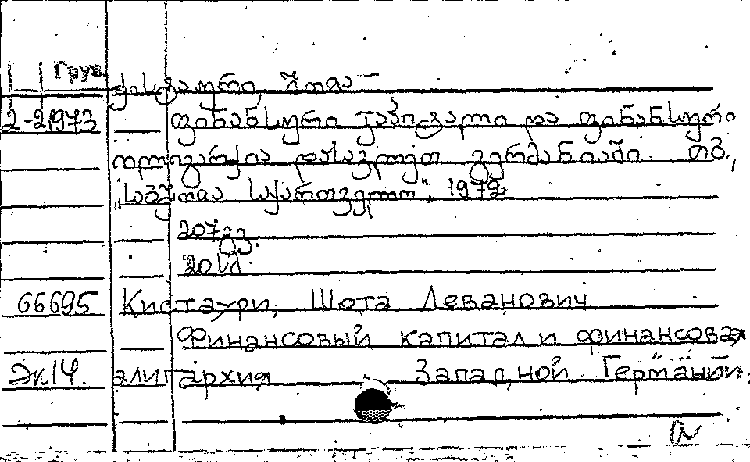 Груз
ქისტაური, შოთა
2-21973 ფინანსური კაპიტალი და ფინანსური
ოლიგარქია დასავლეთ გერმანიაში. თბ.,
„საბჭოთა საქართველო“, 1972
207 გვ.
20
66695 Кистаури, Шота Леванович
Финансовый капитал и финансовая
Эк14. алигархия Западной Германии.